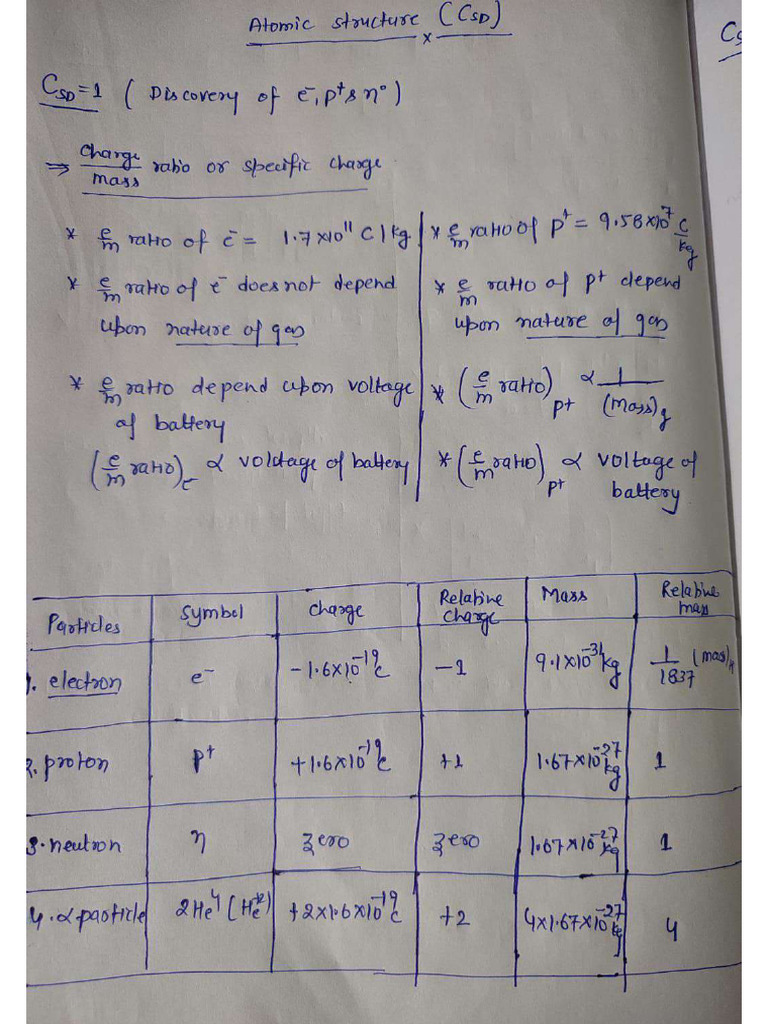 Atomic structure (CSD)
x
CS
CSD=1 ( Discovery of e⁻, p⁺ & n° )
⇒ Charge/mass ratio or specific charge
* e/m ratio of e⁻ = 1.7×10¹¹ C/kg
* e/m ratio of e⁻ does not depend
upon nature of gas
* e/m ratio depend upon voltage
of battery
(e/m ratio)e⁻ ∝ voldtage of battery
* e/m ratio of p⁺ = 9.58×10⁷ C/kg
* e/m ratio of p⁺ depend
upon nature of gas
* (e/m ratio)p⁺ ∝ 1/(Mass)g
* (e/m ratio)p⁺ ∝ voltage of
battery
Particles | Symbol | Charge | Relative Charge | Mass | Relative mass
1. electron | e⁻ | −1.6×10⁻¹⁹ C | −1 | 9.1×10⁻³¹ kg | 1/1837 (mass)H
2. proton | p⁺ | +1.6×10⁻¹⁹ C | +1 | 1.67×10⁻²⁷ kg | 1
3. neutron | η | Zero | Zero | 1.67×10⁻²⁷ kg | 1
4. α particle | 2He⁴ (He⁺²) | +2×1.6×10⁻¹⁹ C | +2 | 4×1.67×10⁻²⁷ kg | 4